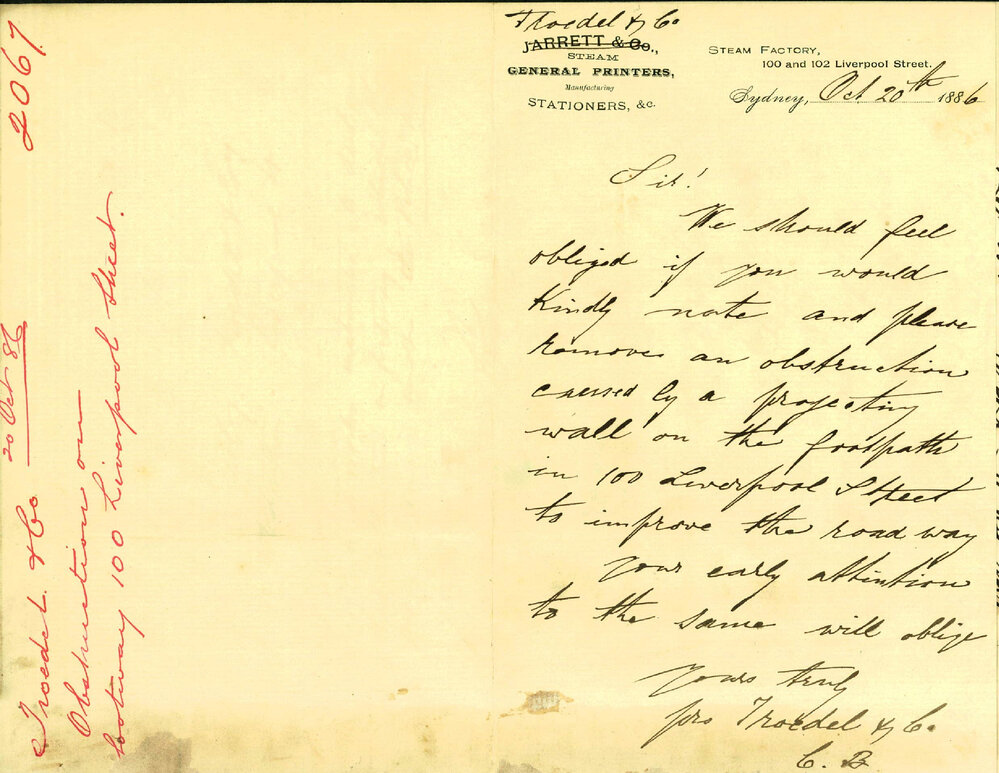 Troedel & Co
JARRETT & Co.,
STEAM
GENERAL PRINTERS,
Manufacturing
STATIONERS, &c.
STEAM FACTORY,
100 and 102 Liverpool Street.
Sydney, Oct 20th 1886
Sir!
We should feel
obliged if you would
Kindly note and please
remove an obstruction
caused by a projecting
wall on the footpath
in 100 Liverpool Street
to improve the road way
your early attention
to the same will oblige
yours truly
pro Troedel & Co.
C. B.
2067
Troedel & Co 20 Oct 86
Obstruction on
footway 100 Liverpool Street.